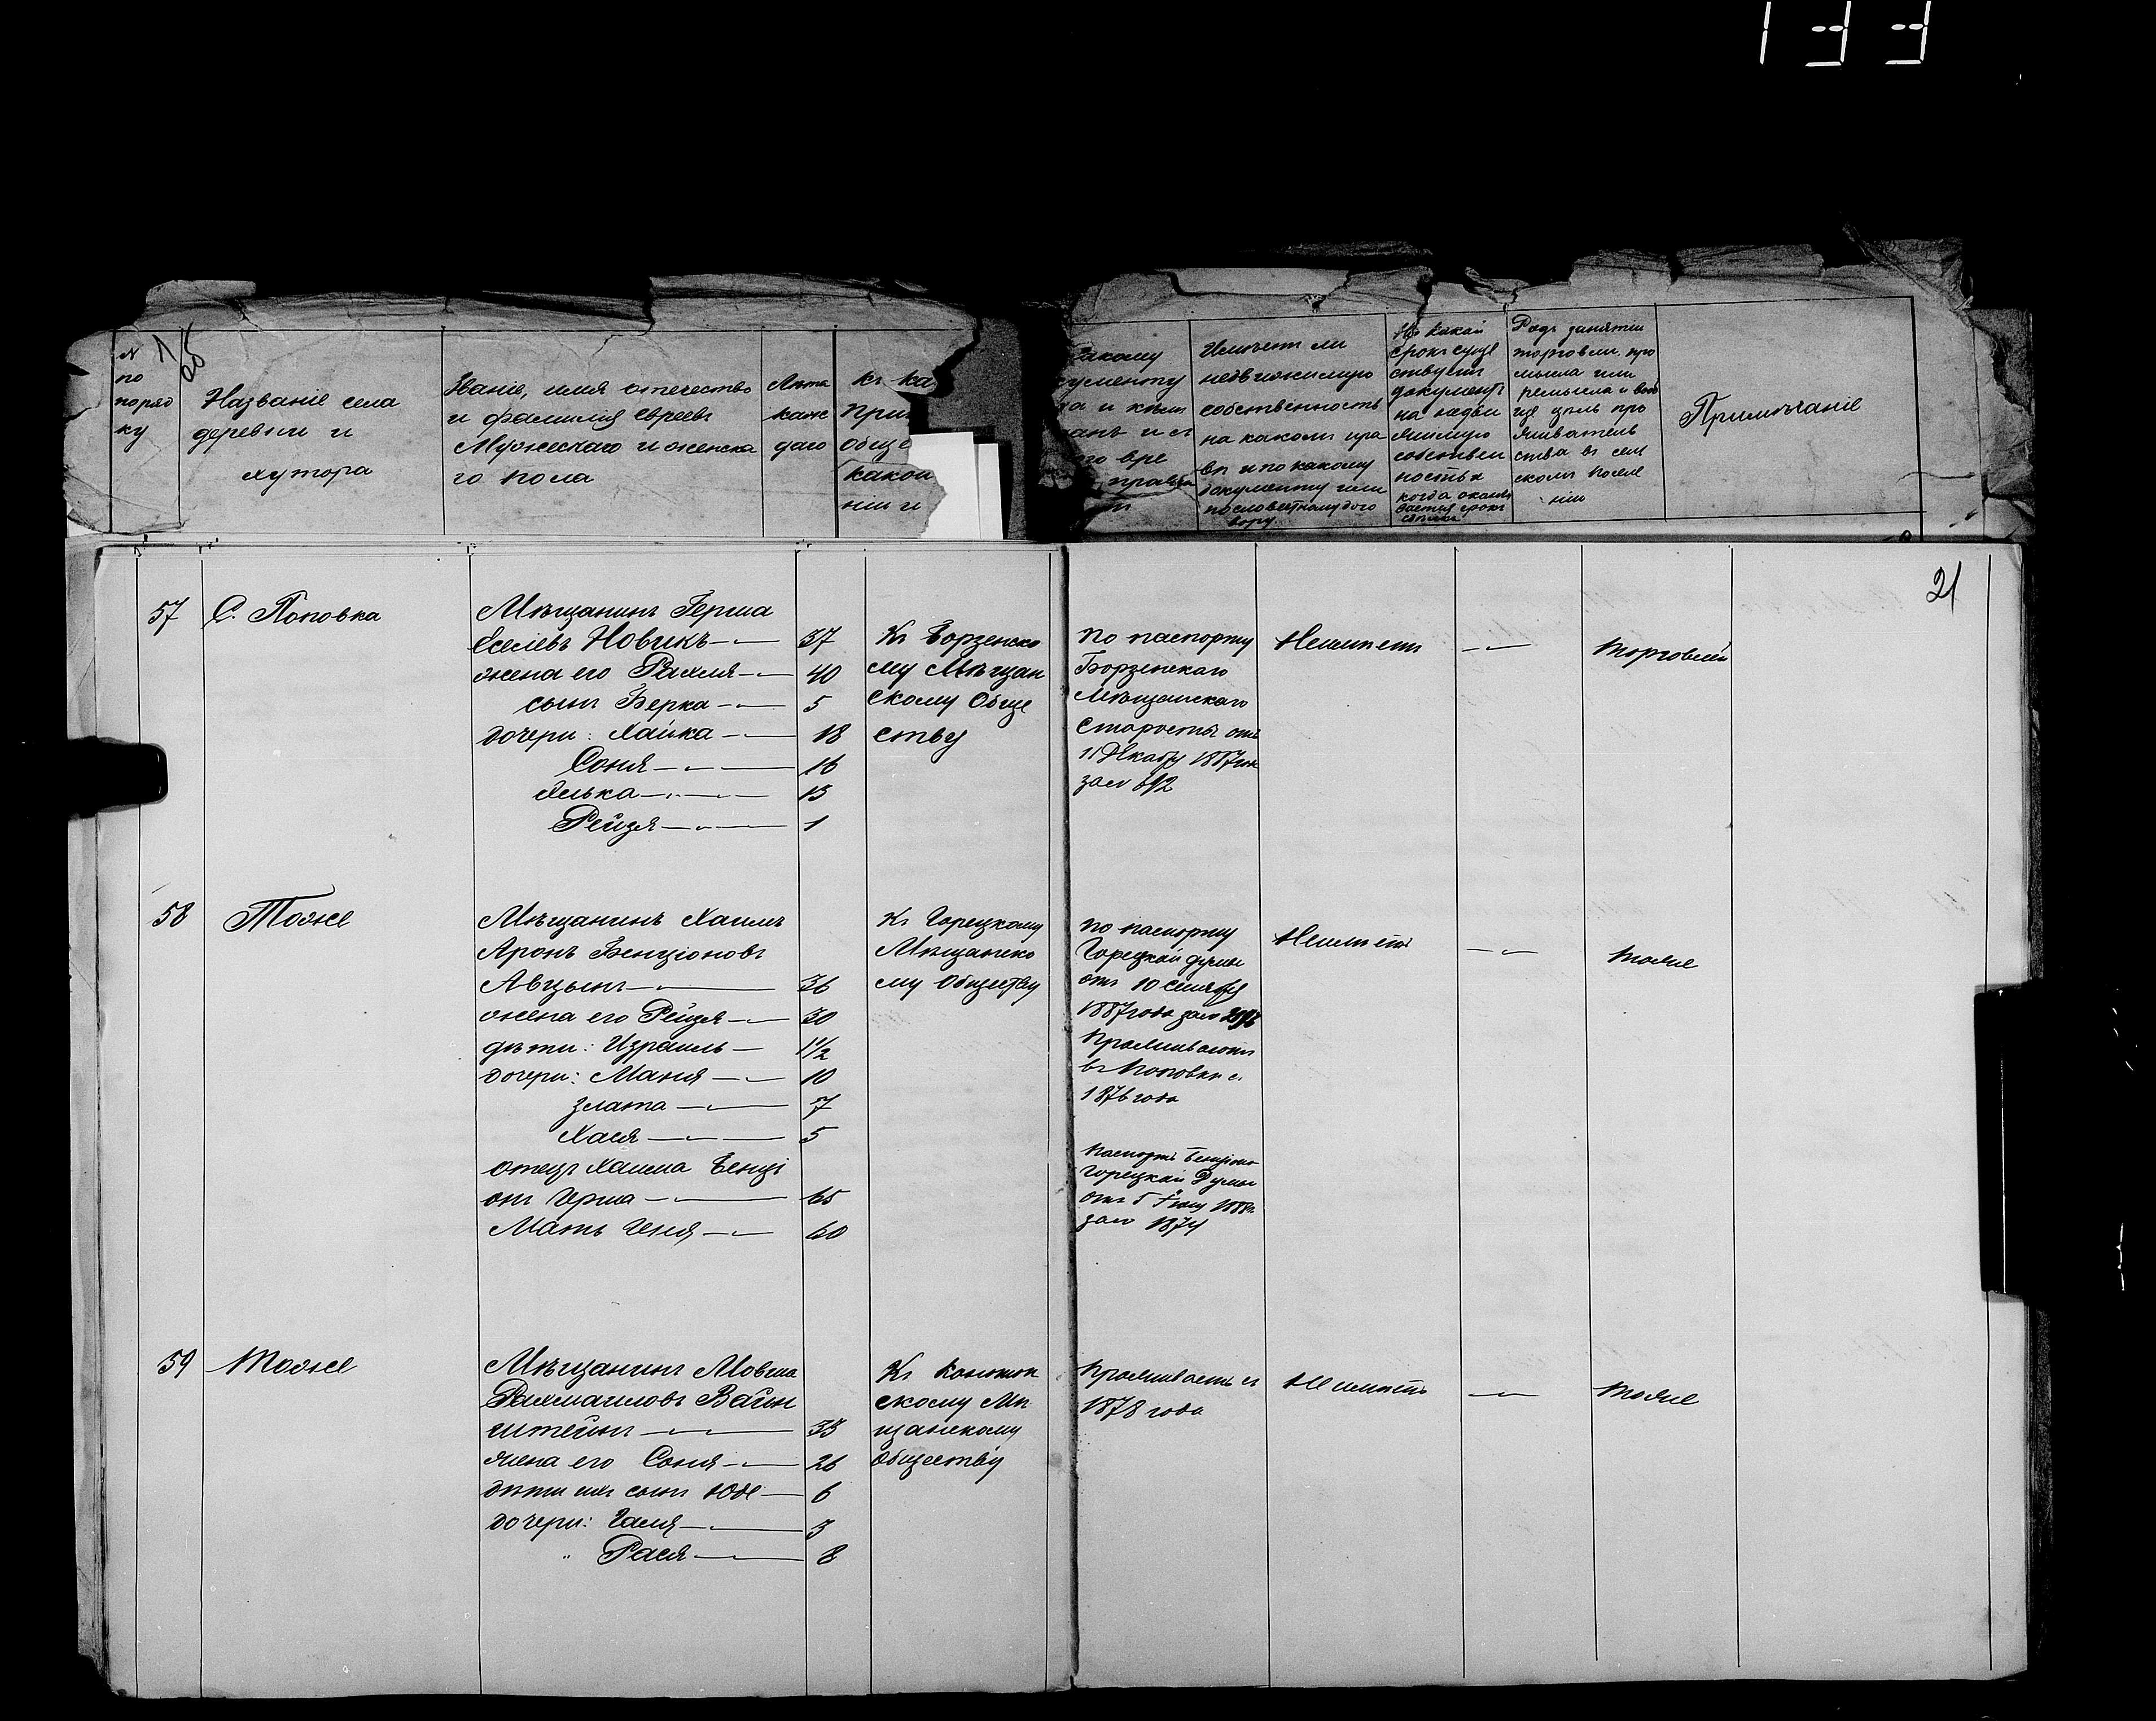 133
№ по поряд ку
Названіе села
деревни и
хутора
Званіе, имя отечество
и фамилія Евреевъ
Мужескаго и женска
го пола
Лѣта
каж
даго
Къ ка
При
обще
какои
ніи и
какому
кументу
Имѣетъ ли
недвижимую
собственность
на какомъ пра
вѣ и по какому
документу или
по словестному дого
вору.
На какой
срокъ суще
ствуетъ
документъ
на недви
жимую
собствен
ность и
когда оканчи
вается срокъ
Родъ занятіи
торговли, про
мысла или
ремысла и вооб
ще цѣль про
живатель
ства въ сель
скомъ поселе
ніи
Примѣчаніе
21
57 С. Поповка
Мѣщанинъ Герша
Еселевъ Новикъ 37
жена его Рахля 40
сынъ Берка 5
дочери: Хайка 18
Соня 16
Элька 13
Рейзя 1
Къ Борзенско
му Мѣщан
скому Обще
ству
по паспорту
Борзенскаго
Мѣщанскаго
Старосты отъ
11 Декабр 1887 год
за №
Неимѣетъ
торговлей
58 Тоже
Мѣщанинъ Хаимъ
Аронъ Бенціоновъ
Авцынъ 36
жена его Рейзя 30
дѣти: Израиль 1 1/2
дочери: Маня 10
Злата 7
Хася 5
отецъ Хаима Бенці
онъ Герша 65
Мать Геня 60
Къ Горецкому
Мѣщанско
му Обществу
по паспорту
Горецкой думы
отъ 10 Сентябр
1887 года за №
Проживаютъ
въ Поповки с.
1876 года
паспортъ Бенціона
Горецкой Думы
отъ 5
за № 1874
Неимѣетъ
тоже
59 Тоже
Мѣщанинъ Мовша
Рахмаиловъ Вайн
штейнъ 33
жена его Соня 26
дѣти ихъ сынъ Юде 6
дочери: Галя 3
" Рася 8
Къ Конотоп
скому Мѣ
щанскому
Обществу
Проживаетъ съ
1878 года
Не имѣетъ
тоже